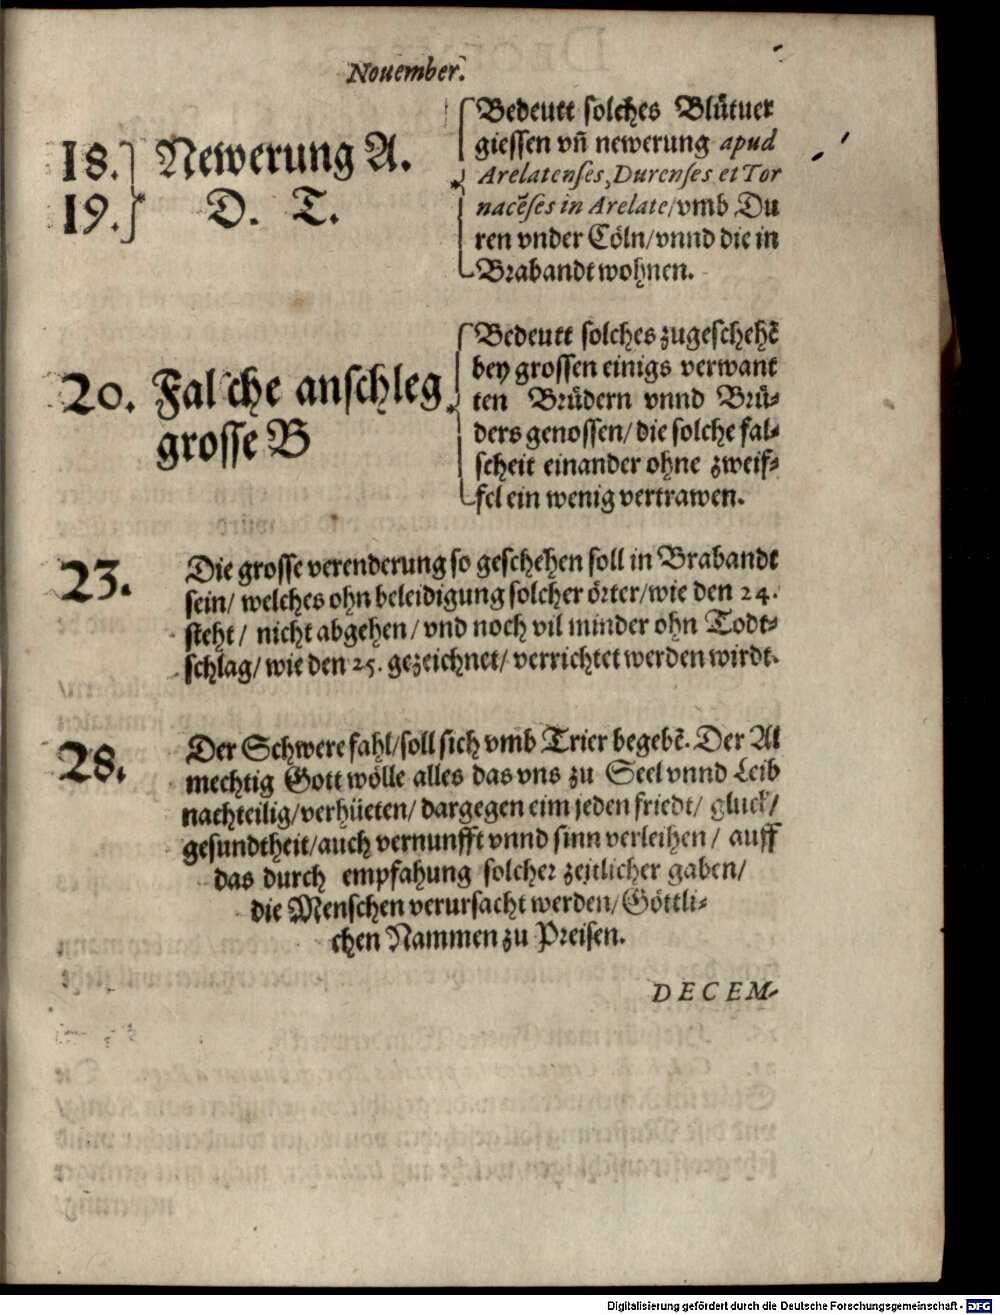 Nouember.
18. Newerung A.
19. D. T.
Bedeutt solches Blůtuer
giessen vñ newerung apud
Arelatenses, Durenses et Tor
nacẽses in Arelate/vmb Du
ren vnder Cöln/vnnd die in
Brabandt wohnen.
20. Falsche anschleg
grosse B
Bedeutt solches zugeschehẽ
bey grossen einigs verwant
ten Brůdern vnnd Brů-
ders genossen/ die solche fal-
scheit einander ohne zweif-
fel ein wenig vertrawen.
23. Die grosse verenderung so geschehen soll in Brabandt
sein/ welches ohn beleidigung solcher örter/wie den 24.
steht/ nicht abgehen/ vnd noch vil minder ohn Todt-
schlag/ wie den 25. gezeichnet/ verrichtet werden wirdt.
28. Der Schwere fahl/soll sich vmb Trier begebẽ. Der Al
mechtig Gott wölle alles das vns zu Seel vnnd Leib
nachteilig/verhüeten/ dargegen eim jeden friedt/ gluck/
gesundtheit/auch vernunfft vnnd sinn verleihen/ auff
das durch empfahung solcher zeitlicher gaben/
die Menschen verursacht werden/Göttli-
chen Nammen zu Preisen.
DECEM-
Digitalisierung gefördert durch die Deutsche Forschungsgemeinschaft - DFG